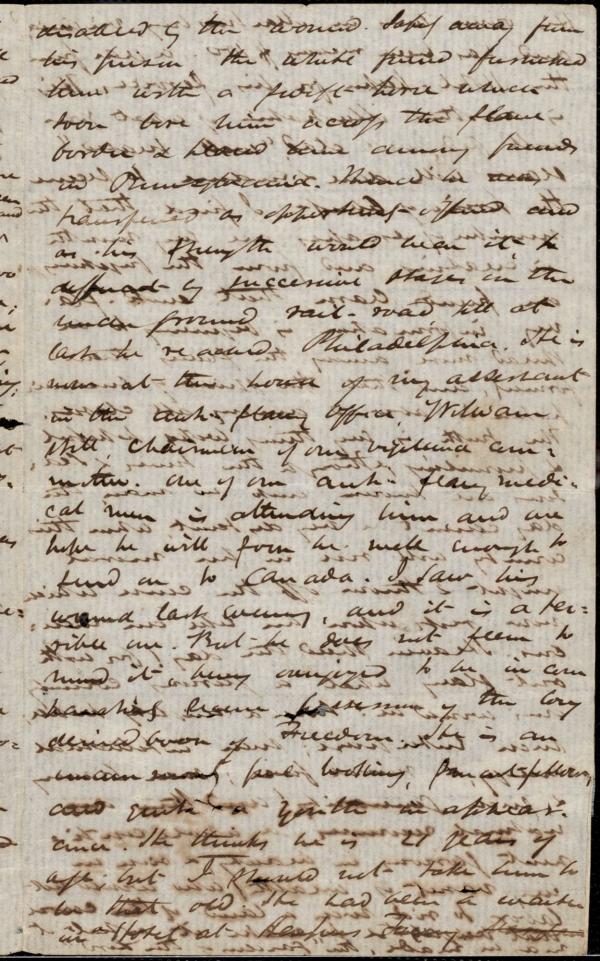 disabled by the wound. Safely away from
his prison the white friend furnished
him with a swift horse which
soon bore him across the slave
border & placed him among friends
in Pennsylvania. Thence he was
transferred as opportunity offered and
as his strength would bear it,
by successive stages in the
under ground rail-road till at
last he reached Philadelphia. He is
now at the house of my assistant
in the anti-slavery office, William
Still, chairman of our vigilance com-
mittee. One of our anti-slavery medi-
cal men is attending him and we
hope he will soon be well enough to
send on to Canada. I saw his
wound last evening, and it is a ter-
rible one. But he does not seem to
mind it, being overjoyed to be in com
paratively secure possession of the long
desired boon of Freedom. He is an
uncommonly fine looking, young fellow,
and quite a youth in appear-
ance. He thinks he is 21 years of
age but I should not take him to
be that old. He had been a waiter
in a Hotel at Harpers Ferry